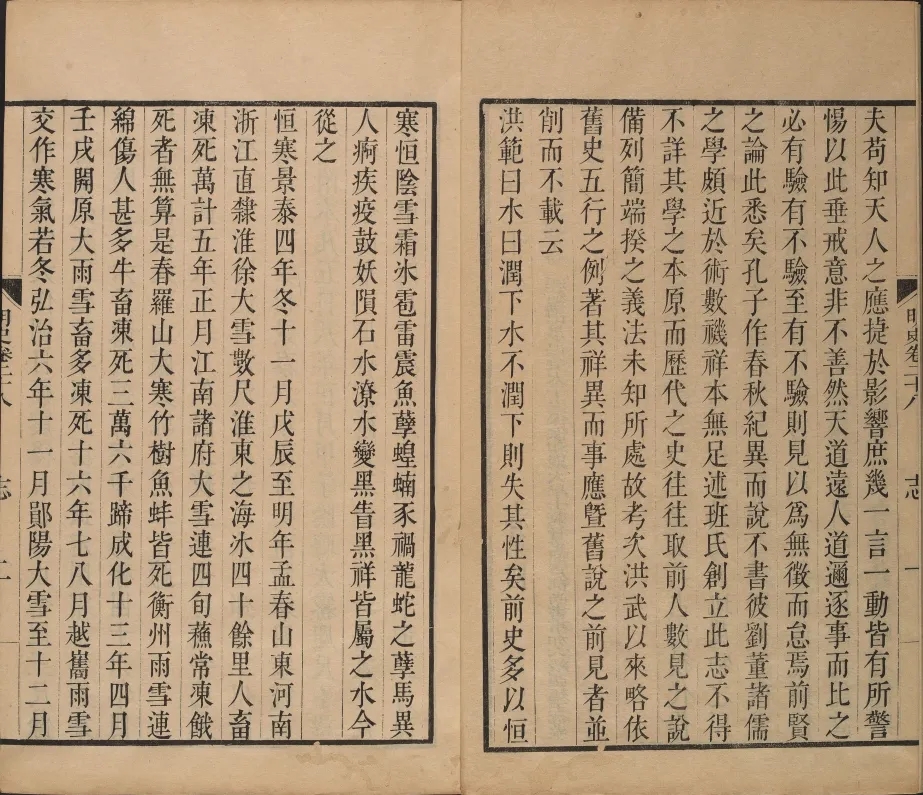 夫苟知天人之應捷於影響庶幾一言一動皆有所警
惕以此垂戒意非不善然天道遠人道邇逐事而比之
必有驗有不驗至有不驗則見以爲無徵而怠焉前賢
之論此悉矣孔子作春秋紀異而說不書彼劉董諸儒
之學頗近於術數禨祥本無足述班氏創立此志不得
不詳其學之本原而歷代之史往往取前人數見之說
備列簡端揆之義法未知所處故考次洪武以來略依
舊史五行之例著其祥異而事應暨舊說之前見者並
削而不載云
洪範曰水曰潤下水不潤下則失其性矣前史多以恒
明史卷二十八
志
一
寒恒陰雪霜氷雹雷震魚孽蝗蝻豕禍龍蛇之孽馬異
人痾疾疫鼓妖隕石水潦水變黑眚黑祥皆屬之水今
從之
恒寒景泰四年冬十一月戊辰至明年孟春山東河南
浙江直隸淮徐大雪數尺淮東之海冰四十餘里人畜
凍死萬計五年正月江南諸府大雪連四旬蘓常凍餓
死者無算是春羅山大寒竹樹魚蚌皆死衡州雨雪連
綿傷人甚多牛畜凍死三萬六千蹄成化十三年四月
壬戌開原大雨雪畜多凍死十六年七八月越巂雨雪
交作寒氣若冬弘治六年十一月鄖陽大雪至十二月
明史卷二十八
志
二